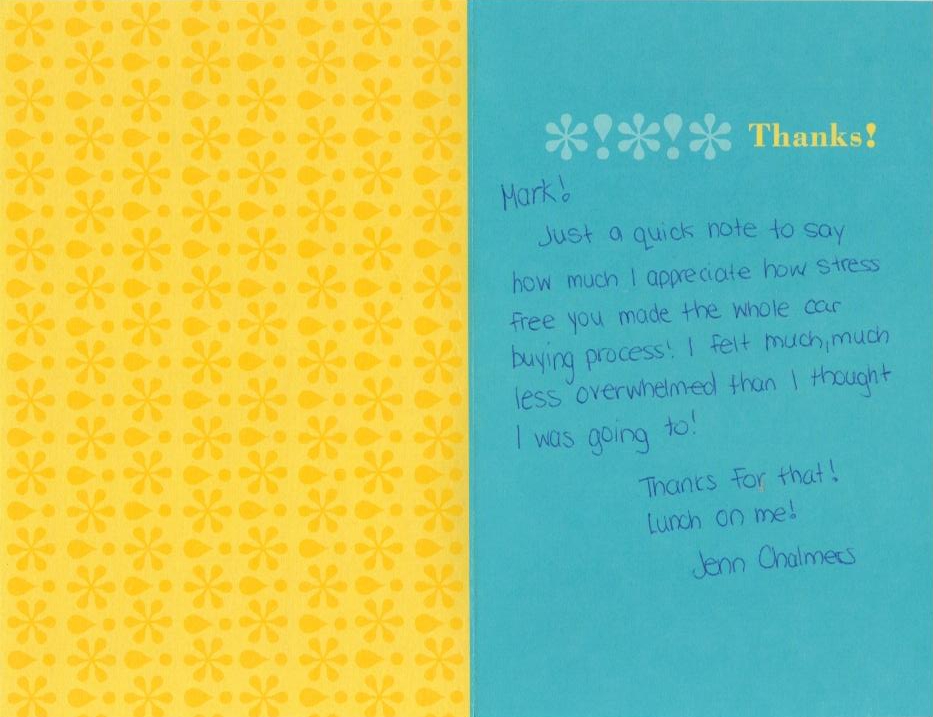 Thanks!
Mark!
Just a quick note to say
how much I appreciate how stress
free you made the whole car
buying process! I felt much, much
less overwhelmed than I thought
I was going to!
Thanks for that!
Lunch on me!
Jenn Chalmers